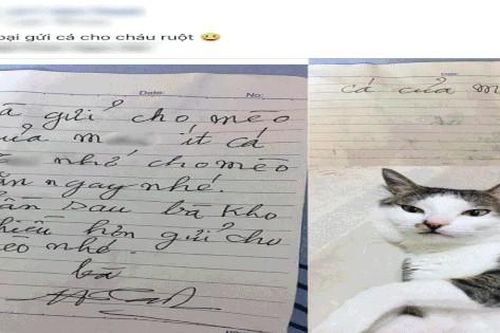 oại gửi cá cho cháu ruột 😄
Date: No:
à gửi cho mèo
ủa m ít cá
nhớ cho mèo
ăn ngay nhé.
ần sau bà kho
hiều hơn gửi cho
èo nhé.
bà
cá của m